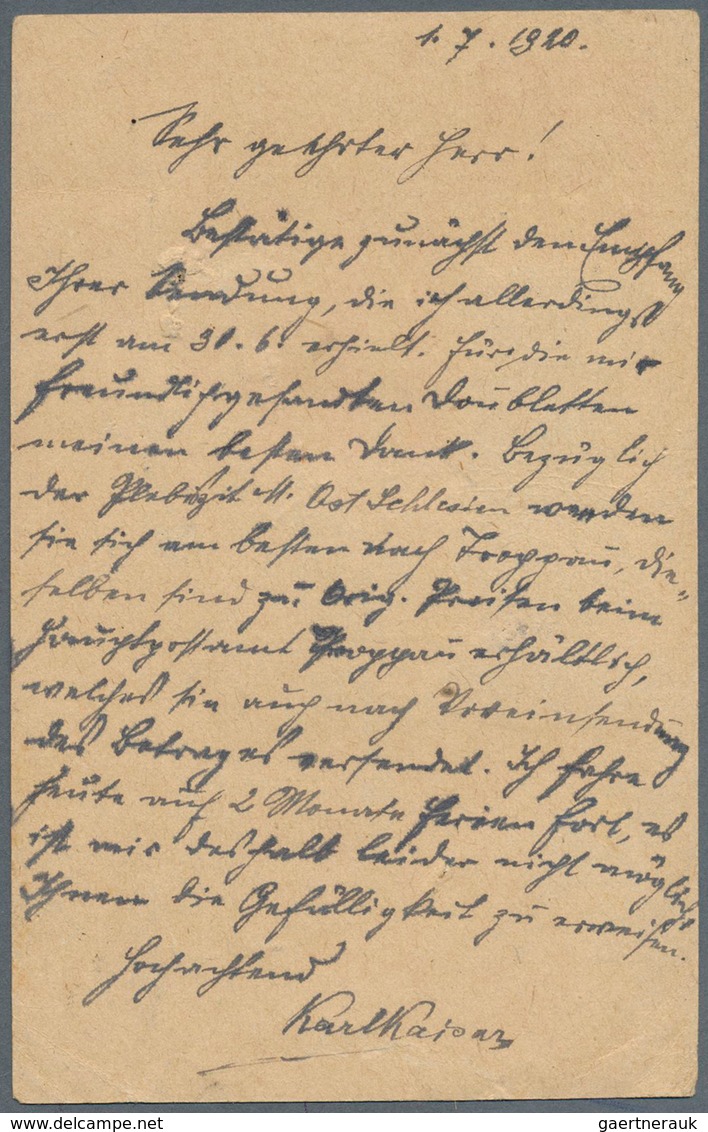 1. 7. 1920.
Sehr geehrter Herr!
Bestätige zunächst den Empfang
Ihrer Sendung, die ich allerdings
erst am 30. 6. erhielt. Für die mir
freundlichst gesandten Doubletten
meinen besten Dank. Bezüglich
der Plebizit M. Ost Schlesien wenden
sie sich am besten nach Troppau, die-
selben sind zu Orig. Preisen beim
Hauptpostamt Troppau erhältlich,
welches sie auch nach Voreinsendung
des Betrages versendet. Ich fahre
heute auf 2 Monate Ferien fort, es
ist mir deshalb leider nicht möglich
Ihnen die Gefälligkeit zu erweisen.
Hochachtend
Karl Kaiser
gaertnerauk